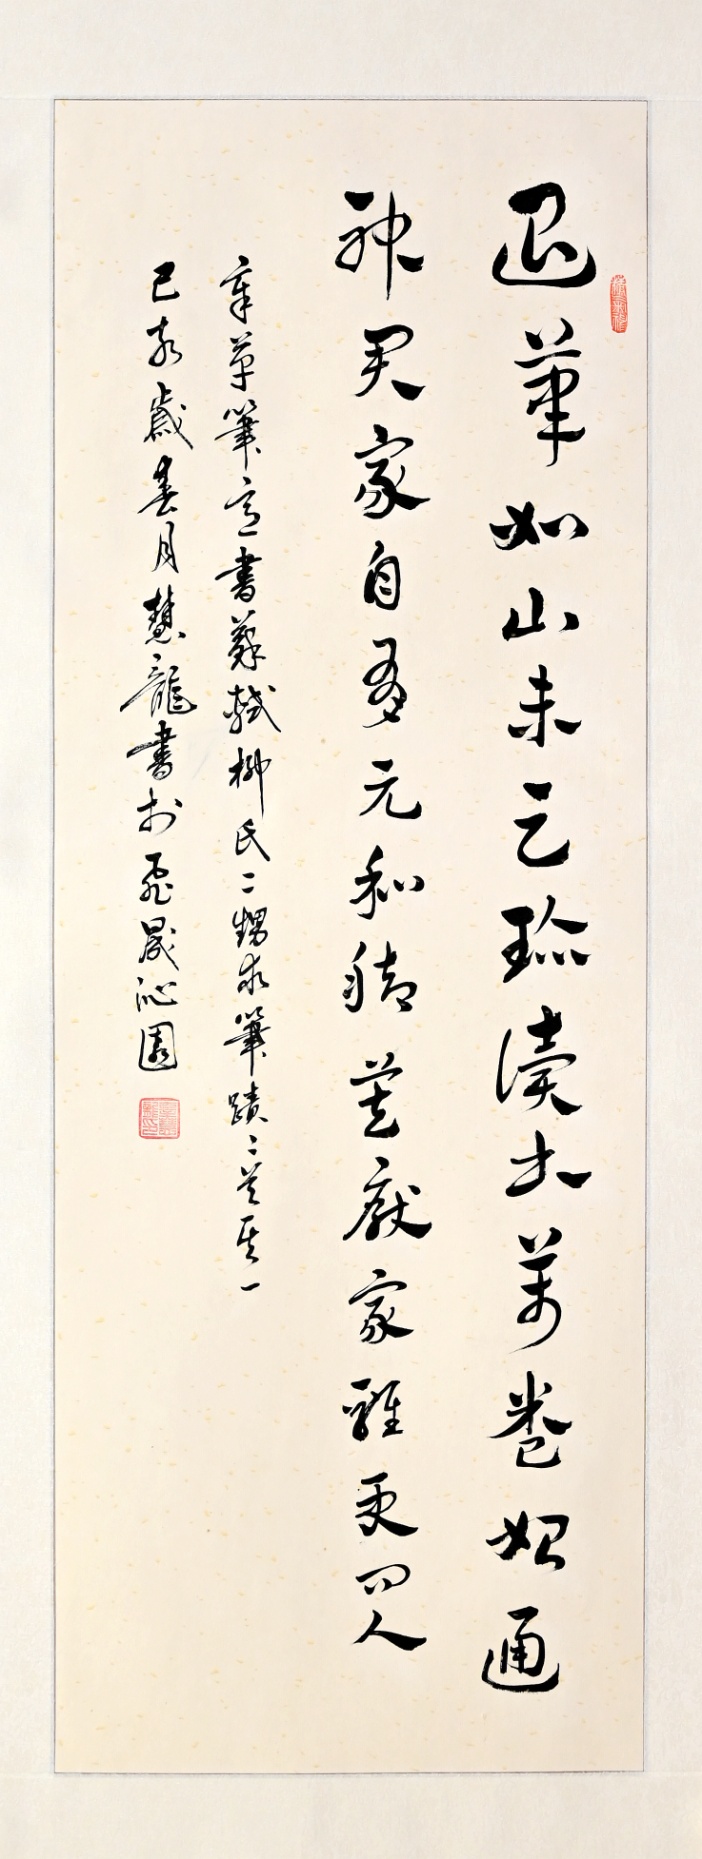 退筆如山未足珍讀書萬卷始通
神君家自有元和脚莫厭家雞更問人
章草筆意書蘇軾柳氏二甥求筆蹟二首其一
己亥歲春月慧龍書於飛晟沁園